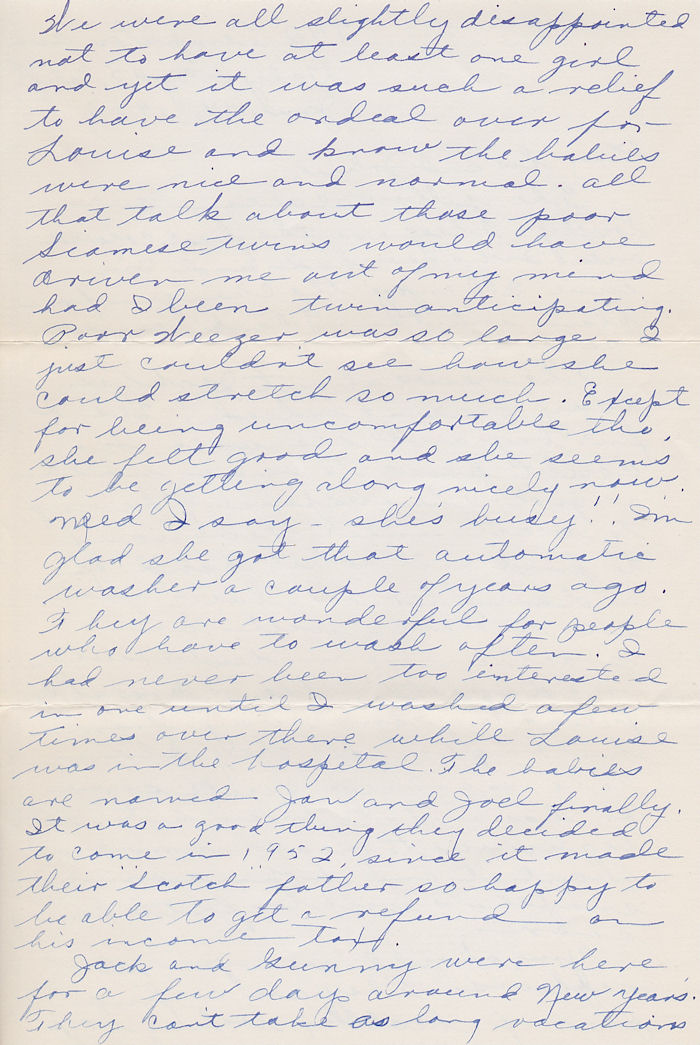 We were all slightly disappointed
not to have at least one girl
and yet it was such a relief
to have the ordeal over for
Louise and know the babies
were nice and normal. All
that talk about those poor
Siamese twins would have
driven me out of my mind
had I been twin anticipating.
Poor Weezer was so large - I
just couldn't see how she
could stretch so much. Except
for being uncomfortable tho,
she felt good and she seems
to be getting along nicely now.
Need I say - she's busy!! I'm
glad she got that automatic
washer a couple of years ago.
They are wonderful for people
who have to wash often. I
had never been too interested
in one until I washed a few
times over there while Louise
was in the hospital. The babies
are named Jan and Joel finally.
It was a good thing they decided
to come in 1952, since it made
their Scotch father so happy to
be able to get a refund on
his income tax.
Jack and Gunny were here
for a few days around New Years.
They can't take as long vacations